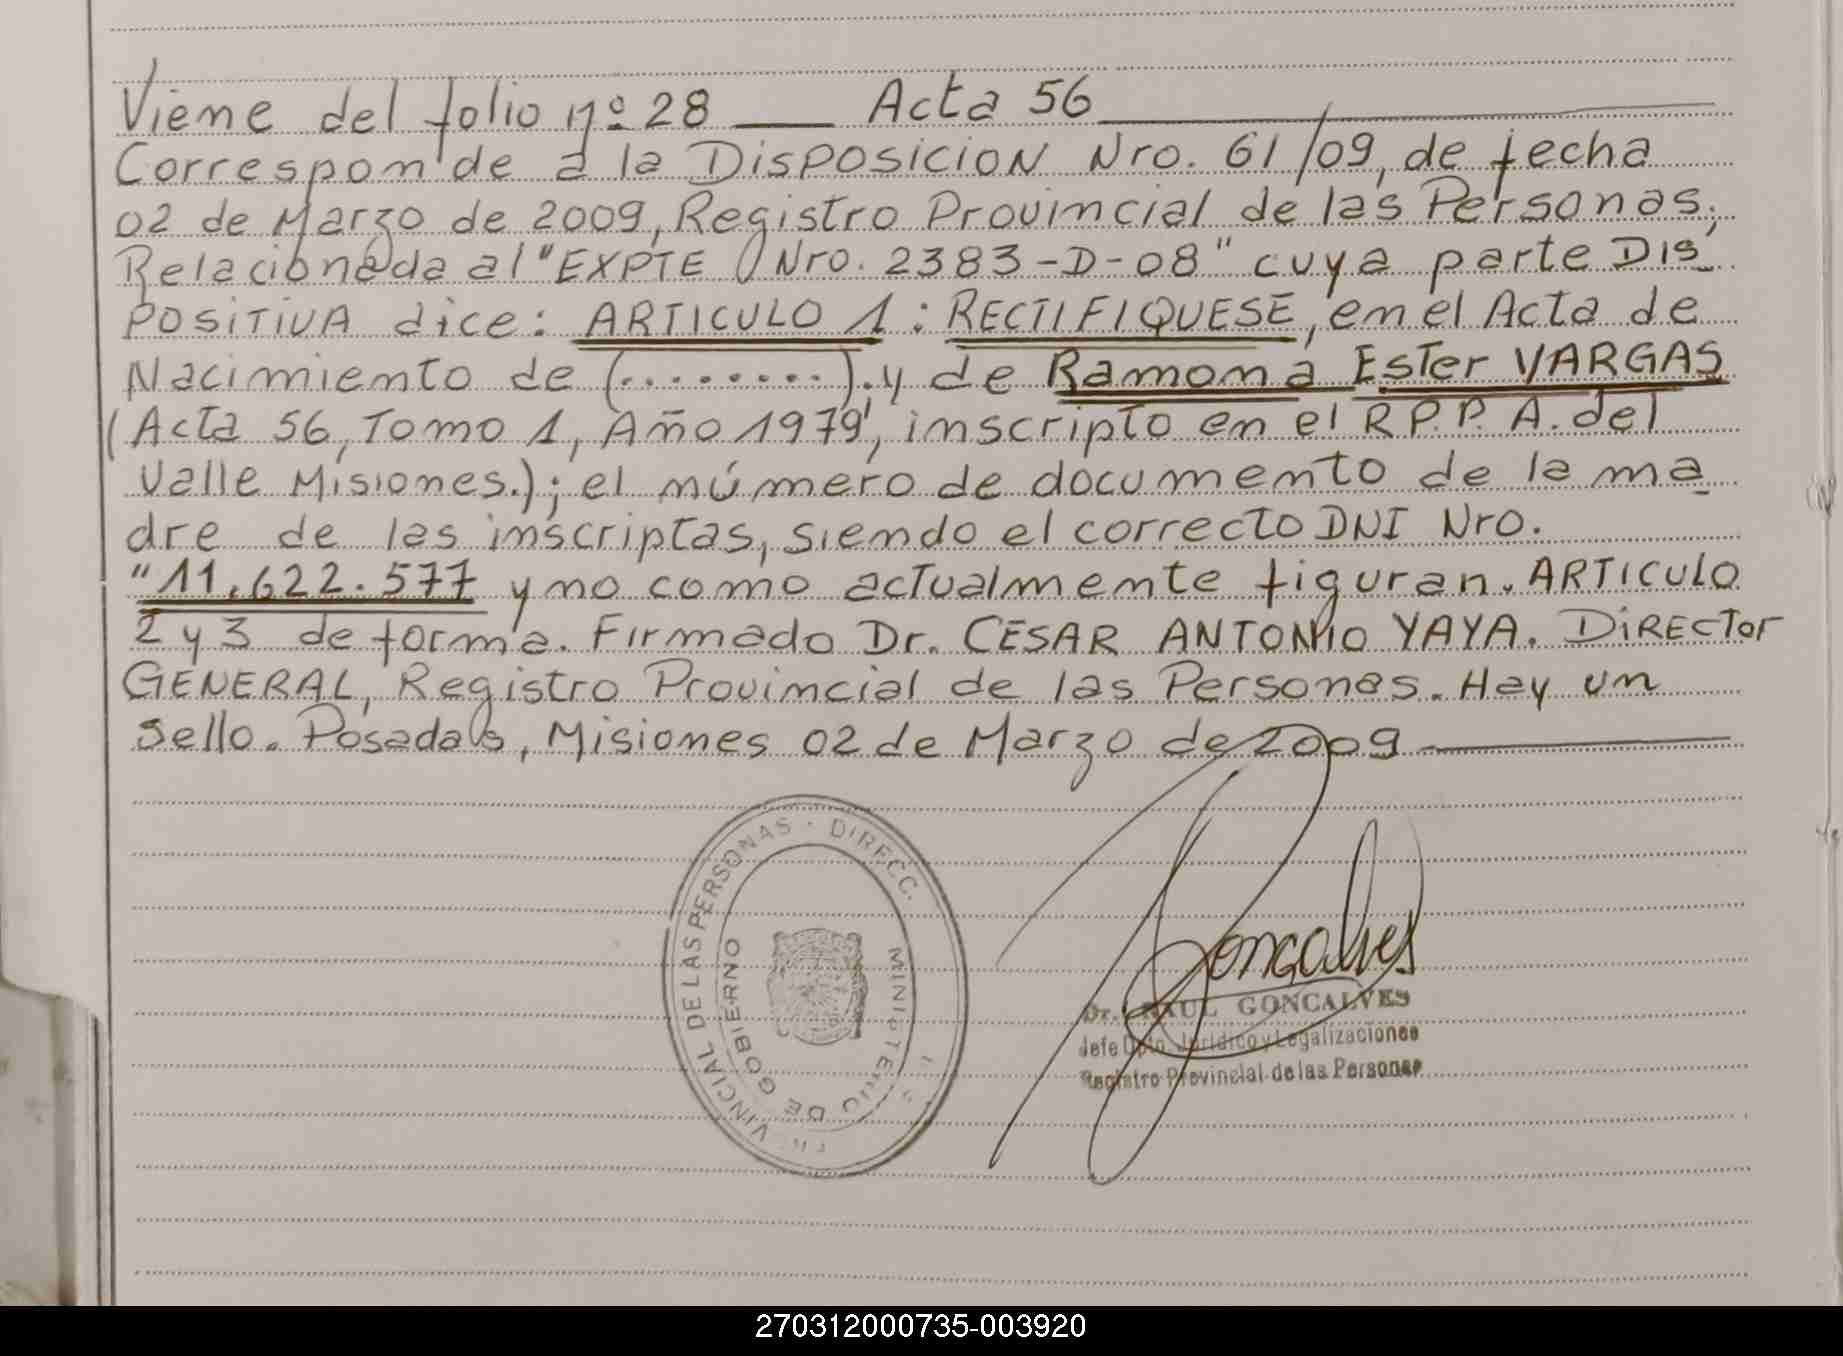 Viene del folio nº 28 ___ Acta 56
Corresponde a la DISPOSICION Nro. 61/09, de fecha
02 de Marzo de 2009, Registro Provincial de las Personas,
Relacionada al "EXPTE Nro. 2383-D-08" cuya parte DIS
POSITIVA dice: ARTICULO 1: RECTIFIQUESE, en el Acta de
Nacimiento de (........).y de Ramona Ester VARGAS
(Acta 56, Tomo 1, Año 1979, inscripto en el R.P.P.A. del
Valle Misiones.); el número de documento de la ma
dre de las inscriptas, siendo el correcto DNI Nro.
"11.622.577 y no como actualmente figuran. ARTICULO
2 y 3 de forma. Firmado Dr. CESAR ANTONIO YAYA. DIRECTOR
GENERAL, Registro Provincial de las Personas. Hay un
sello. Posadas, Misiones 02 de Marzo de 2009
VINCIAL DE LAS PERSONAS · DIRECC.
MINISTERIO DE GOBIERNO
Goncalves
Dr. RAUL GONCALVES
Jefe Dpto. Jurídico y Legalizaciones
Registro Provincial de las Personas
270312000735-003920